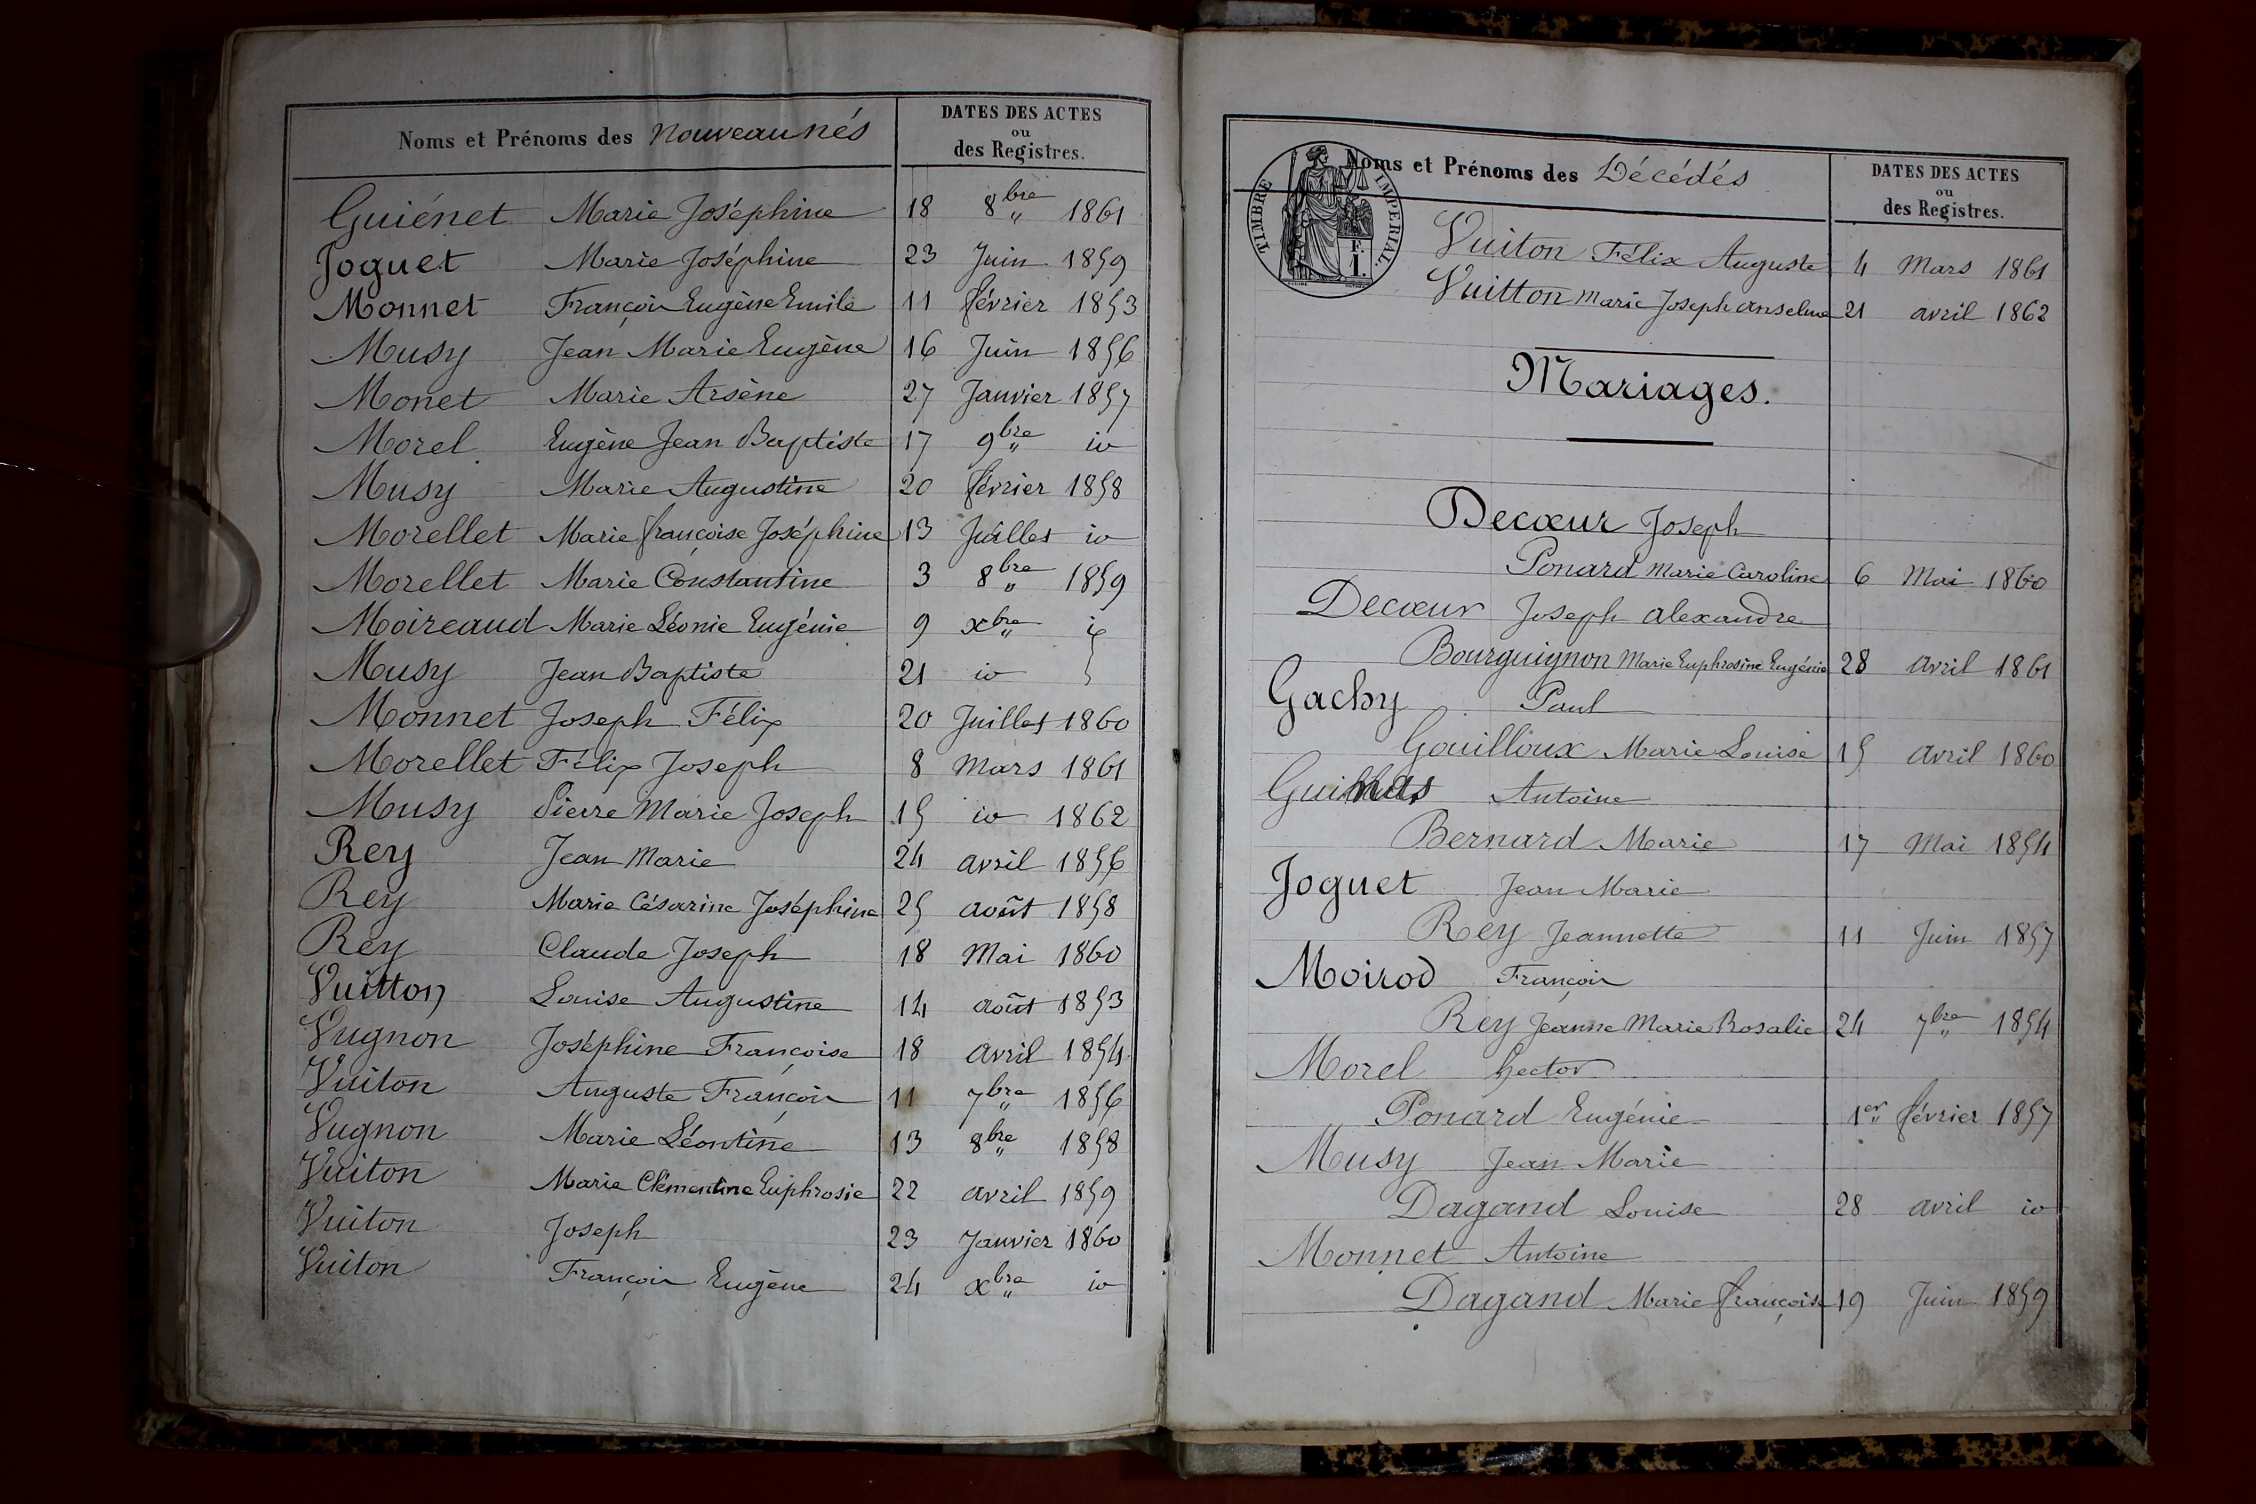 Noms et Prénoms des Nouveaunés
DATES DES ACTES
ou
des Registres.
Guiénet Marie Joséphine 18 8bre 1861
Joguet Marie Joséphine 23 Juin 1859
Monnet François Eugène Emile 11 février 1853
Musy Jean Marie Eugène 16 Juin 1856
Monet Marie Arsène 27 Janvier 1857
Morel Eugène Jean Baptiste 17 9bre id
Musy Marie Augustine 20 février 1858
Morellet Marie françoise Joséphine 13 Juillet id
Morellet Marie Constantine 3 8bre 1859
Moireaud Marie Léonie Eugénie 9 xbre id
Musy Jean Baptiste 21 id
Monnet Joseph Félix 20 Juillet 1860
Morellet Félix Joseph 8 Mars 1861
Musy Pierre Marie Joseph 15 id 1862
Rey Jean Marie 24 avril 1856
Rey Marie Césarine Joséphine 25 août 1858
Rey Claude Joseph 18 Mai 1860
Vuitton Louise Augustine 14 août 1853
Vugnon Joséphine Françoise 18 avril 1854
Vuiton Auguste François 11 7bre 1856
Vugnon Marie Léontine 13 8bre 1858
Vuiton Marie Clémentine Euphrosie 22 avril 1859
Vuiton Joseph 23 Janvier 1860
Vuiton François Eugène 24 xbre id
TIMBRE IMPÉRIAL
Noms et Prénoms des Décédés
DATES DES ACTES
ou
des Registres.
Vuiton Félix Auguste 4 Mars 1861
Vuitton Marie Joseph anselme 21 avril 1862
Mariages.
Decœur Joseph
Ponard Marie Caroline 6 Mai 1860
Decœur Joseph alexandre
Bourguignon Marie Euphrosine Eugénie 28 avril 1861
Gachy Paul
Gouilloux Marie Louise 15 avril 1860
Antoine
Bernard Marie 17 Mai 1854
Joguet Jean Marie
Rey Jeannette 11 Juin 1857
Moirod François
Rey Jeanne Marie Rosalie 24 7bre 1854
Morel hector
Ponard Eugénie 1er février 1857
Musy Jean Marie
Dagand Louise 28 avril id
Monnet Antoine
Dagand Marie françoise 19 Juin 1859